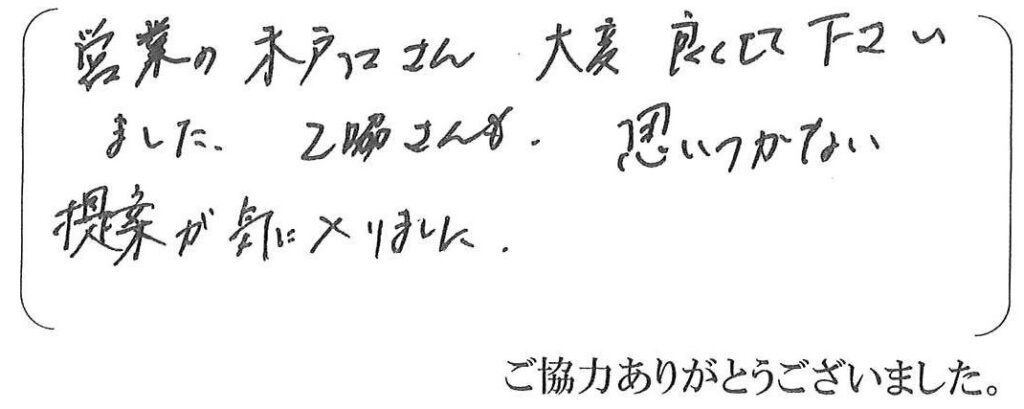 営業の木戸口さん 大変 良くして下さい
ました。 乙脇さんも、 思いつかない
提案が気に入りました。
ご協力ありがとうございました。